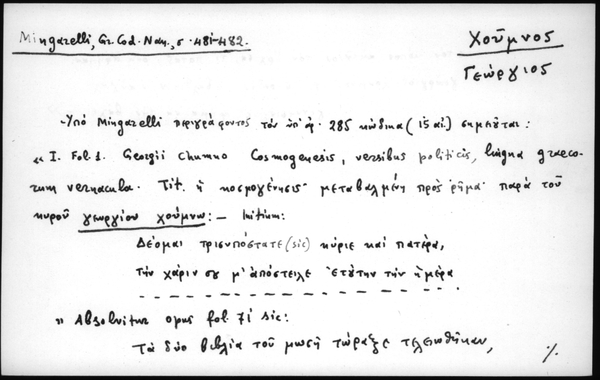 Mingarelli, Gr. Cod. Nan., σ. 481-482.
Χοῦμνος
Γεώργιος
Ὑπό Mingarelli περιγράφοντος τόν ὑπ' ἀρ. 285 κώδικα (15 αἰ.) σημειοῦται:
«I. Fol. 1. Georgii Chumno Cosmogenesis, versibus politicis, lingua graeco-
rum vernacula. Tit. ἡ κοσμογέννησις μεταβαλμένη πρὸς ρῆμα παρά τοῦ
κυροῦ γεωργίου χούμνω: — Initium:
Δέομαι τρισυπόστατε (sic) κύριε καί πατέρα,
τήν χάριν σου μ' ἀπόστειλε ἐτούτην τήν ἡμέρα
» Absolvitur opus fol. 71 sic:
Τά δύο βιβλία τοῦ μωσῆ τώρα ἐτελειώθηκαν,
./.